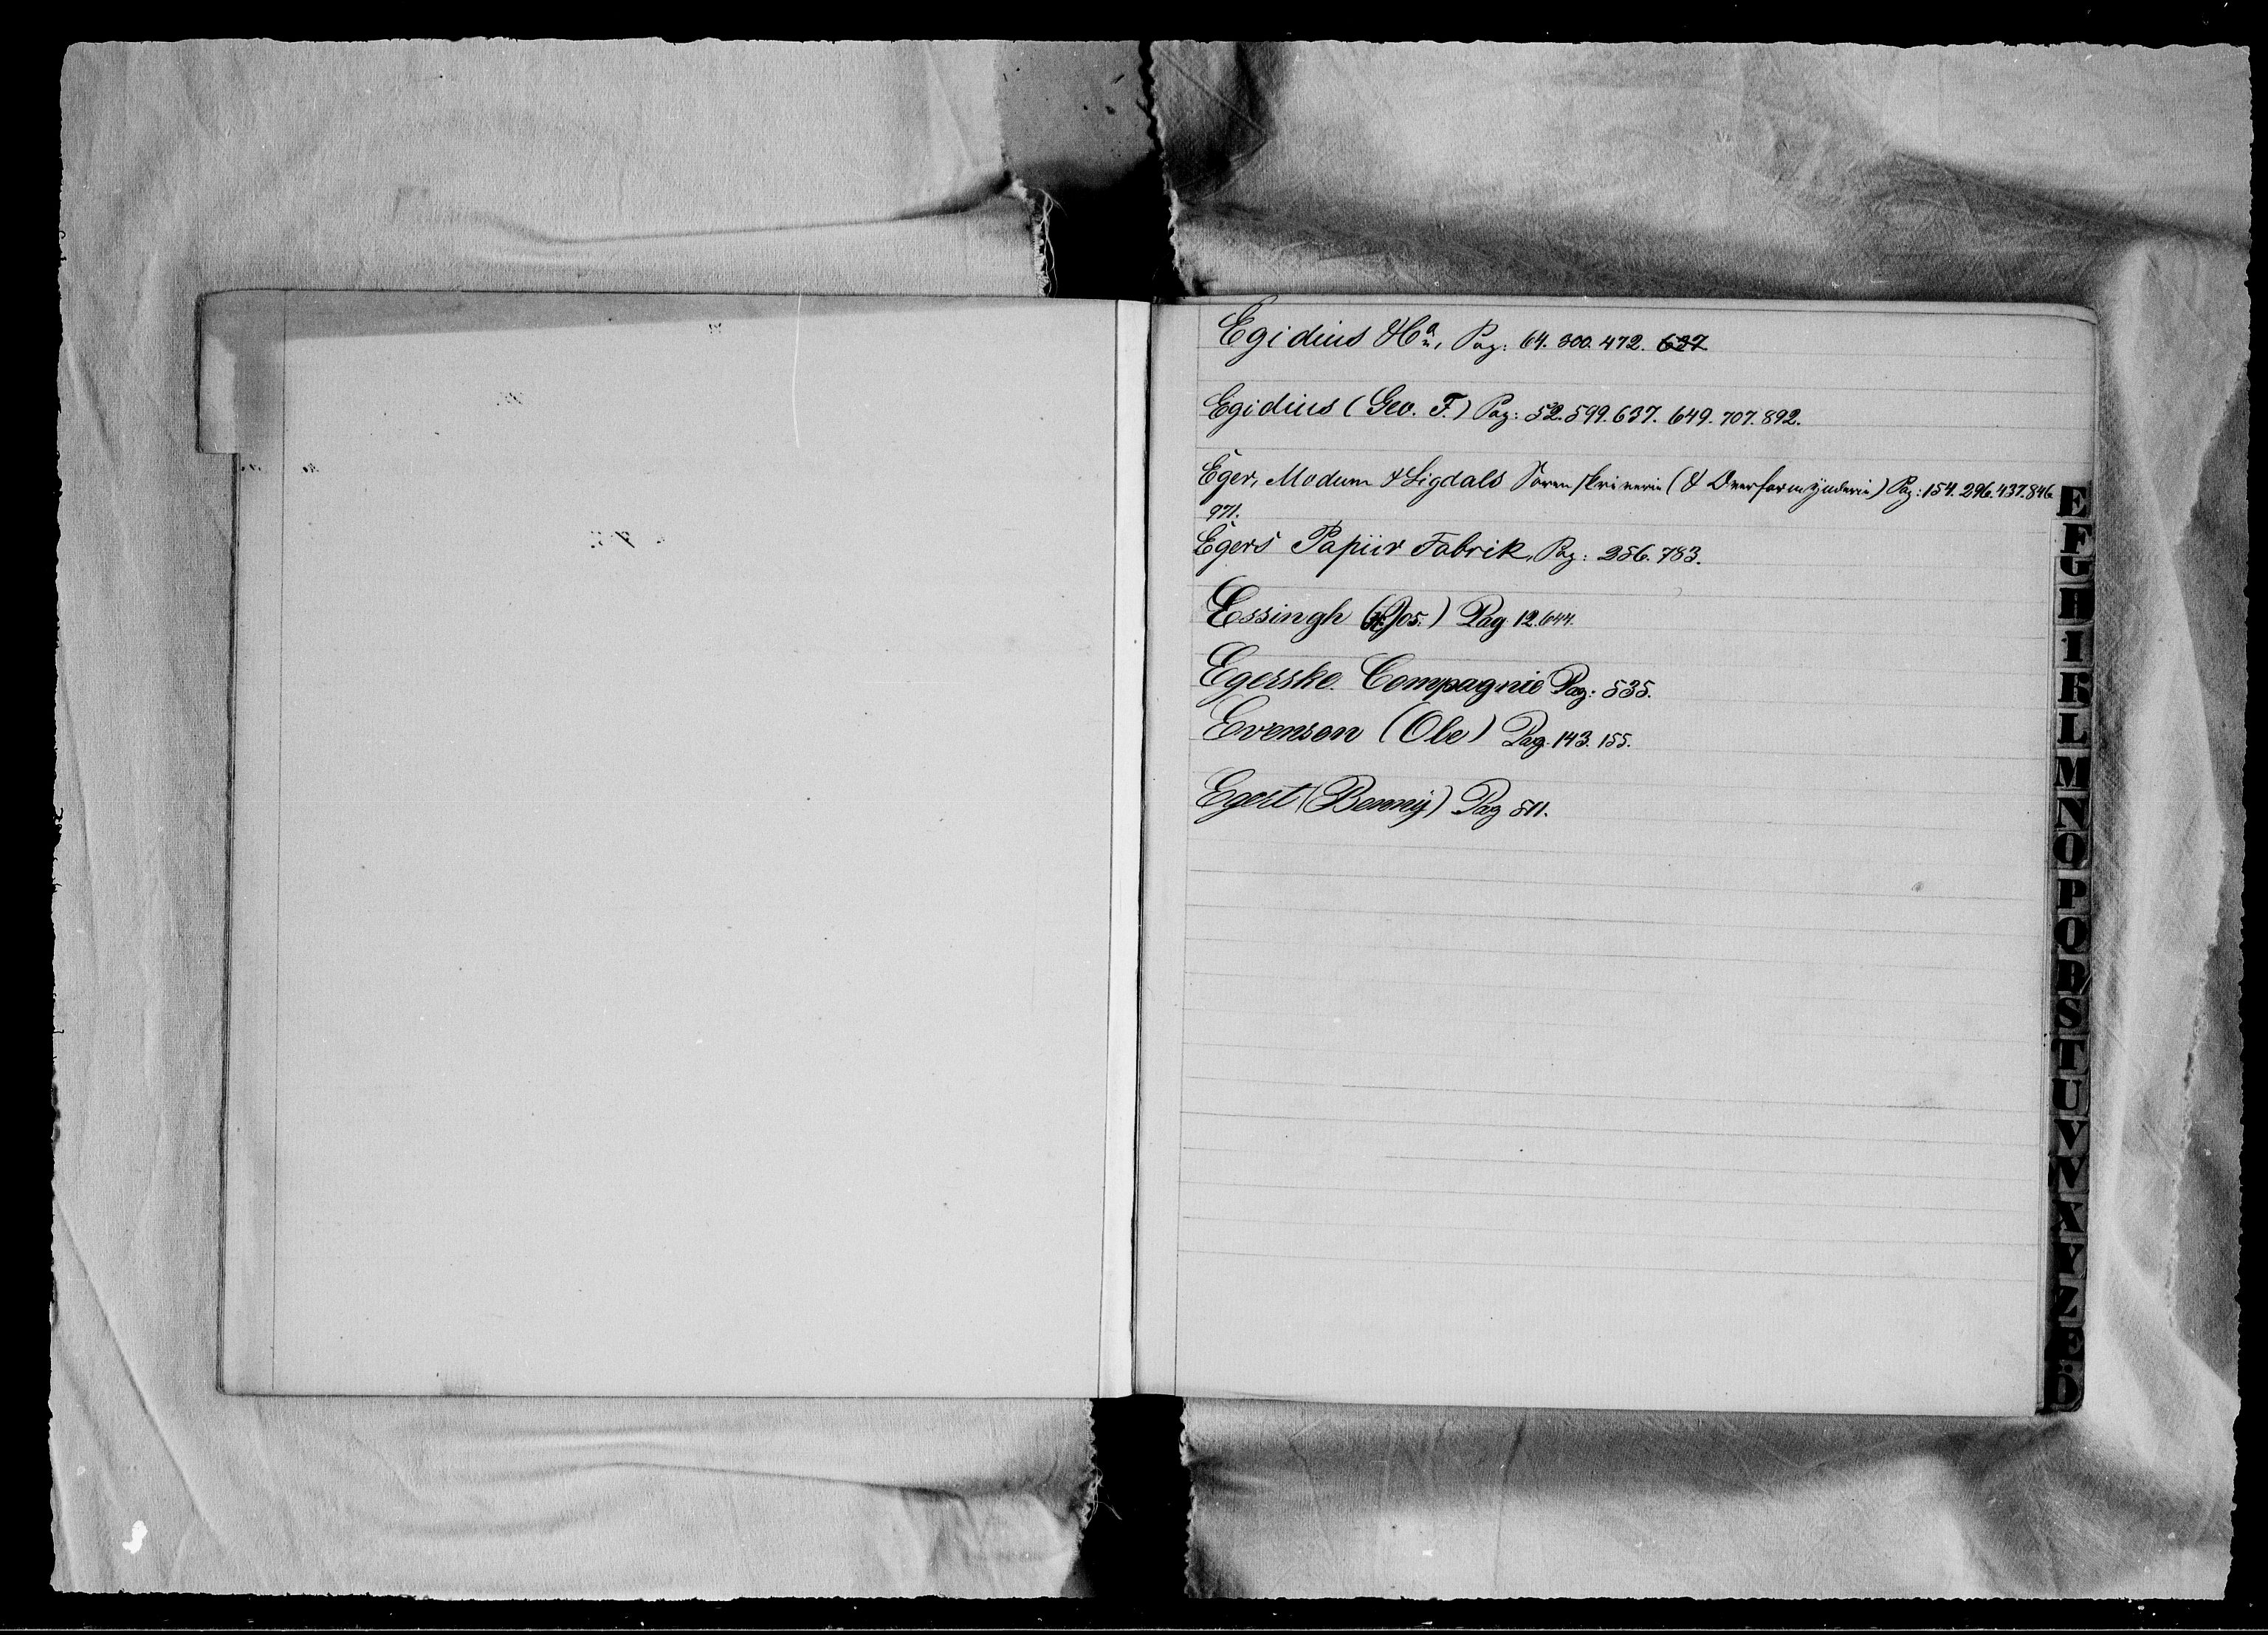 Egidius & Co, Pag: 64. 300. 472. 637
Egidius (Geo. F.) Pag: 52. 599. 637. 649. 707. 892.
Eger, Modum & Sigdals Sorenskriverie (& Overformynderie) Pag: 154. 296. 437. 846
971.
Egers Papiir Fabrik, Pag: 256. 783.
Essingh (H. Jos.) Pag. 12. 644.
Egerske Compagnie Pag: 535.
Evensen (Ole) Pag. 143. 155.
Egert (Benny) Pag 511.
E
F
G
H
I
K
L
M
N
O
P
Q
R
S
T
U
V
W
X
Y
Z
Ö